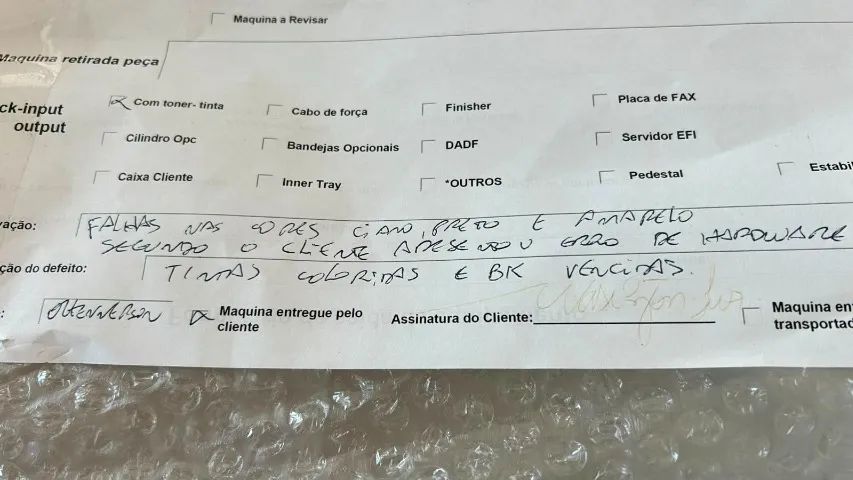 Maquina a Revisar
Maquina retirada peça
ck-input
output
Com toner- tinta
Cabo de força
Finisher
Placa de FAX
Cilindro Opc
Bandejas Opcionais
DADF
Servidor EFI
Caixa Cliente
Inner Tray
*OUTROS
Pedestal
Estabil
vação:
FALHAS NAS CORES CIANO, PRETO E AMARELO
SEGUNDO O CLIENTE APESENTOU ERRO DE HARDWARE
ção do defeito:
TINTAS COLORIDAS E BK VENCIDAS.
Maquina entregue pelo
cliente
Assinatura do Cliente:
Maquina en
transportad